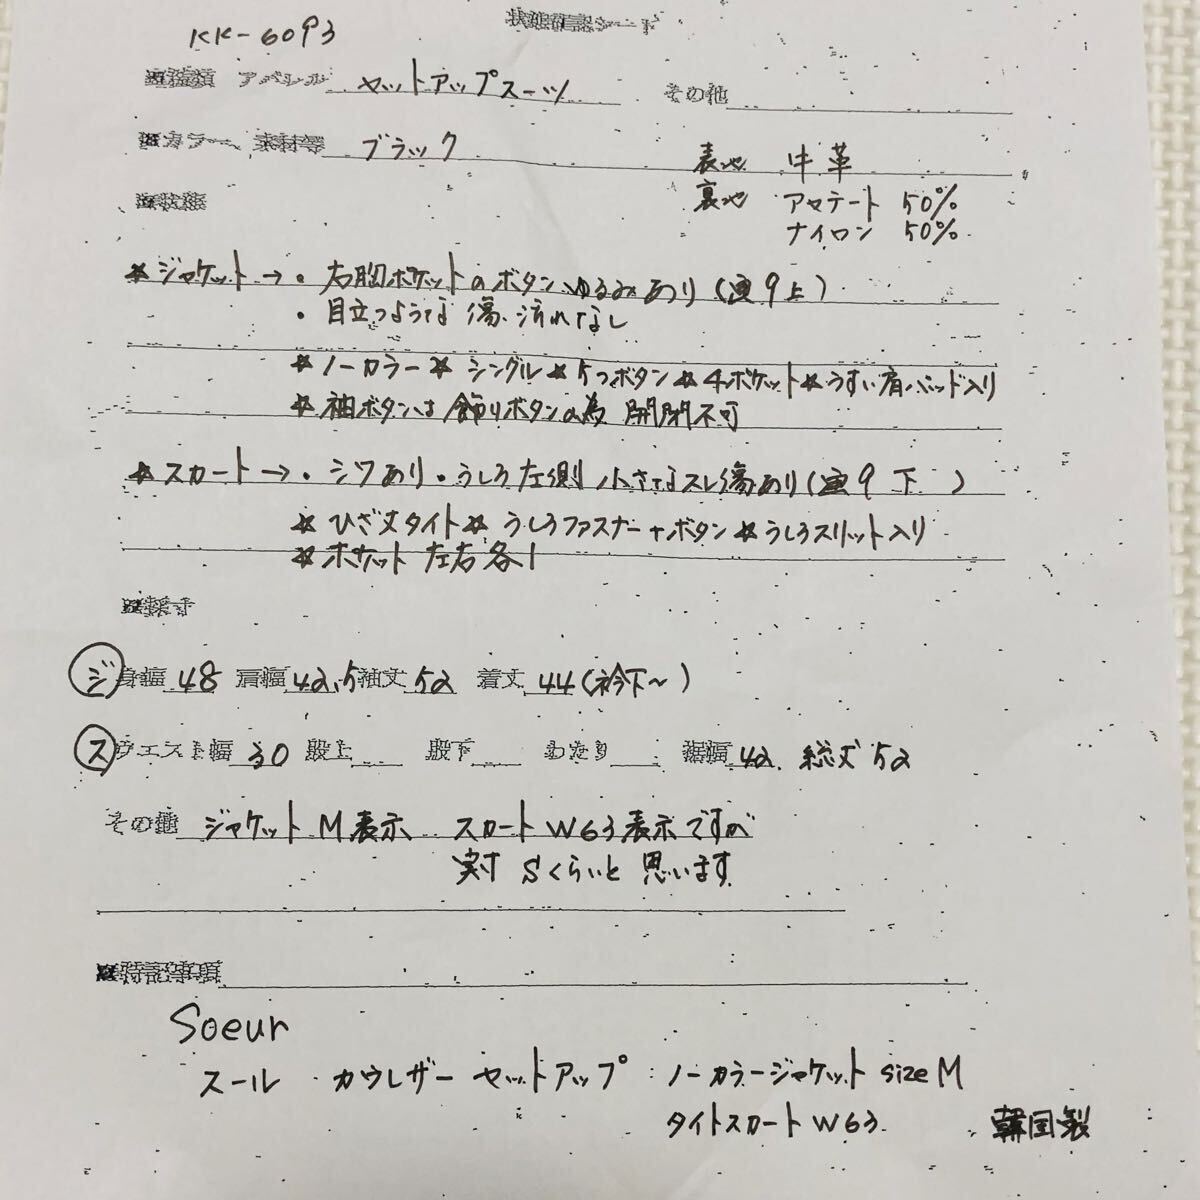 状態確認シート
KK-6093
種類 アパレル セットアップスーツ その他
カラー、素材等 ブラック 表地 牛革
裏地 アセテート 50%
ナイロン 50%
状態
☆ジャケット→・右胸ポケットのボタンゆるみあり(画9上)
・目立つような傷、汚れなし
☆ノーカラー☆シングル☆5つボタン☆4ポケット☆うすい肩パッド入り
☆袖ボタンは飾りボタンの為 開閉不可
☆スカート→・シワあり・うしろ左側 小さなスレ傷あり(画9下)
☆ひざ丈タイト☆うしろファスナー+ボタン☆うしろスリット入り
☆ポケット左右各1
採寸
ジ 身幅 48 肩幅 42.5 袖丈 52 着丈 44(衿下〜)
ス ウエスト幅 30 股上 股下 わたり 裾幅 42 総丈 52
その他 ジャケットM表示 スカートW63表示ですが
実寸 Sくらいと思います
特記事項
Soeur
スール カウレザー セットアップ ノーカラージャケット size M
タイトスカート W63 韓国製